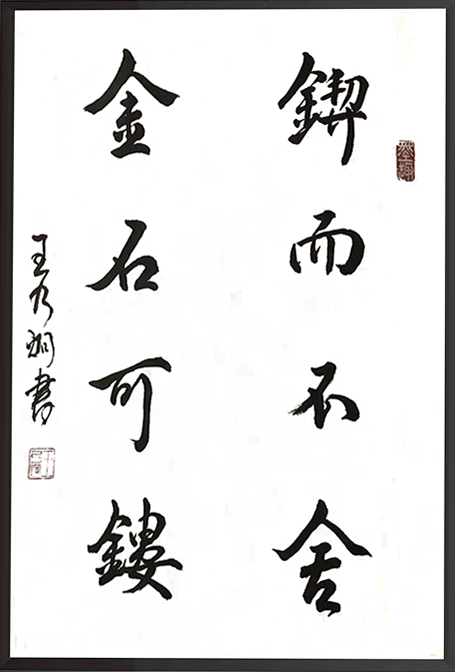 鍥而不舍
金石可鏤
王乃炯書